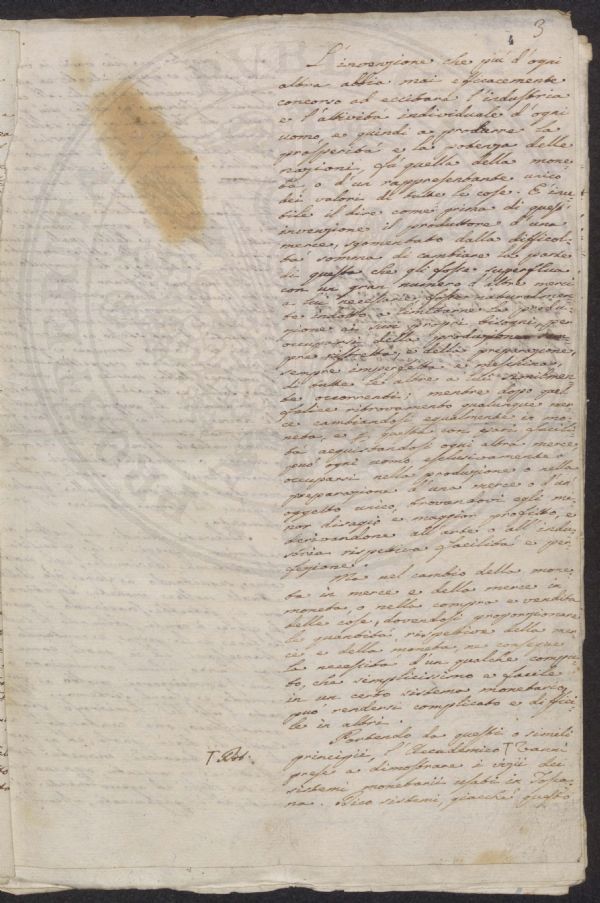 3
4
L'invenzione che più d'ogni
altra abbia mai efficacemente
concorso ad eccitare l'industria
e l'attività individuale d'ogni
uomo, e quindi a produrre la
prosperità e la potenza delle
nazioni, fù quella della mone,
ta, o d'un rappresentante unico
dei valori di tutte le cose. È inu,
tile il dire come prima di quest'
invenzione il produttore d'una
merce, sgomentato dalla difficol,
tà somma di cambiare la parte
di questa che gli fosse superflua
con un gran numero d'altre merci
a lui necessarie, fosse naturalmen,
te indotto a limitarne la produ,
zione ai suoi propri bisogni, per
occuparsi della produzione sem,
pre ristretta, e della preparazione,
sempre imperfetta e meschina,
di tutte le altre a lui similmen,
te occorrenti; mentre dopo quel
felice ritrovamento qualunque mer,
ce cambiandosi egualmente in mo,
neta, e questa con pari facili,
tà acquistandosi ogni altra merce
può ogni uomo esclusivamente
occuparsi nella produzione o nella
preparazione d'una merce o d'un
oggetto unico, trovandovi egli mi,
nor disagio e maggior profitto, e
derivandone all'arte o all'indu,
stria rispettiva facilità e per,
fezione.
Ma nel cambio della mone,
ta in merce e della merce in
moneta, o nella compra e vendita
delle cose, dovendosi proporzionare
le quantità rispettive della mer,
ce e della moneta, ne consegue
la necessità d'un qualche compu,
to, che semplicissimo e facile
in un certo sistema monetario,
può rendersi complicato e diffici,
le in altri.
Partendo da questi o simili
principii, l'Accademico T Vanni
prese a dimostrare i vizii dei
sistemi monetarii usati in Tosca,
na. Dico sistemi, giacchè questo
T